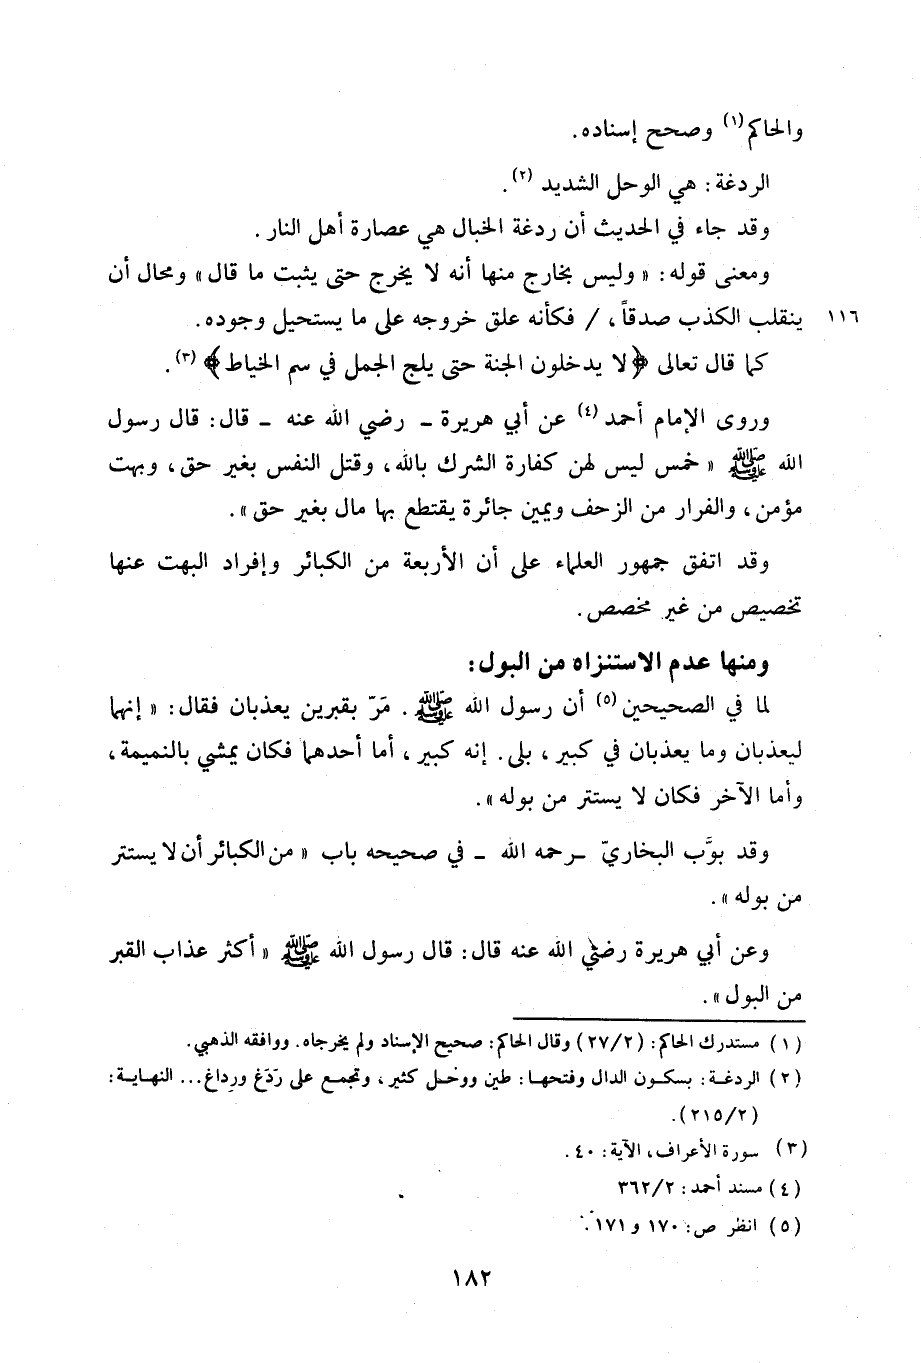 والحاكم(١) وصحح إسناده.
الردغة: هي الوحل الشديد (٢).
وقد جاء في الحديث أن ردغة الخبال هي عصارة أهل النار .
ومعنى قوله: « وليس بخارج منها أنه لا يخرج حتى يثبت ما قال» ومحال أن
ينقلب الكذب صدقاً، / فكأنه علق خروجه على ما يستحيل وجوده. ١١٦
كما قال تعالى ﴿لا يدخلون الجنة حتى يلج الجمل في سم الخياط﴾ (٣).
وروى الإمام أحمد (٤) عن أبي هريرة ـ رضي الله عنه ـ قال: قال رسول
الله ﷺ « خمس ليس لهن كفارة الشرك بالله، وقتل النفس بغير حق، وبهت
مؤمن، والفرار من الزحف ويمين جائرة يقتطع بها مال بغير حق».
وقد اتفق جمهور العلماء على أن الأربعة من الكبائر وإفراد البهت عنها
تخصيص من غير مخصص.
ومنها عدم الاستنزاه من البول:
لما في الصحيحين (٥) أن رسول الله ﷺ . مَرّ بقبرين يعذبان فقال: « إنهما
ليعذبان وما يعذبان في كبير ، بلى. إنه كبير ، أما أحدهما فكان يمشي بالنميمة،
وأما الآخر فكان لا يستتر من بوله ».
وقد بوَّب البخاريّ ـرحمه الله ـ في صحيحه باب « من الكبائر أن لا يستتر
من بوله ».
وعن أبي هريرة رضي الله عنه قال: قال رسول الله ﷺ « أكثر عذاب القبر
من البول ».
(١) مستدرك الحاكم: (٢٧/٢) وقال الحاكم: صحيح الإسناد ولم يخرجاه. ووافقه الذهبي.
(٢) الردغة: بسكون الدال وفتحها: طين ووحل كثير، وتجمع على ردَغ ورِداغ... النهاية:
(٢١٥/٢).
(٣) سورة الأعراف، الآية: ٤٠.
(٤) مسند أحمد: ٣٦٢/٢
(٥) انظر ص: ١٧٠ و ١٧١.
١٨٢